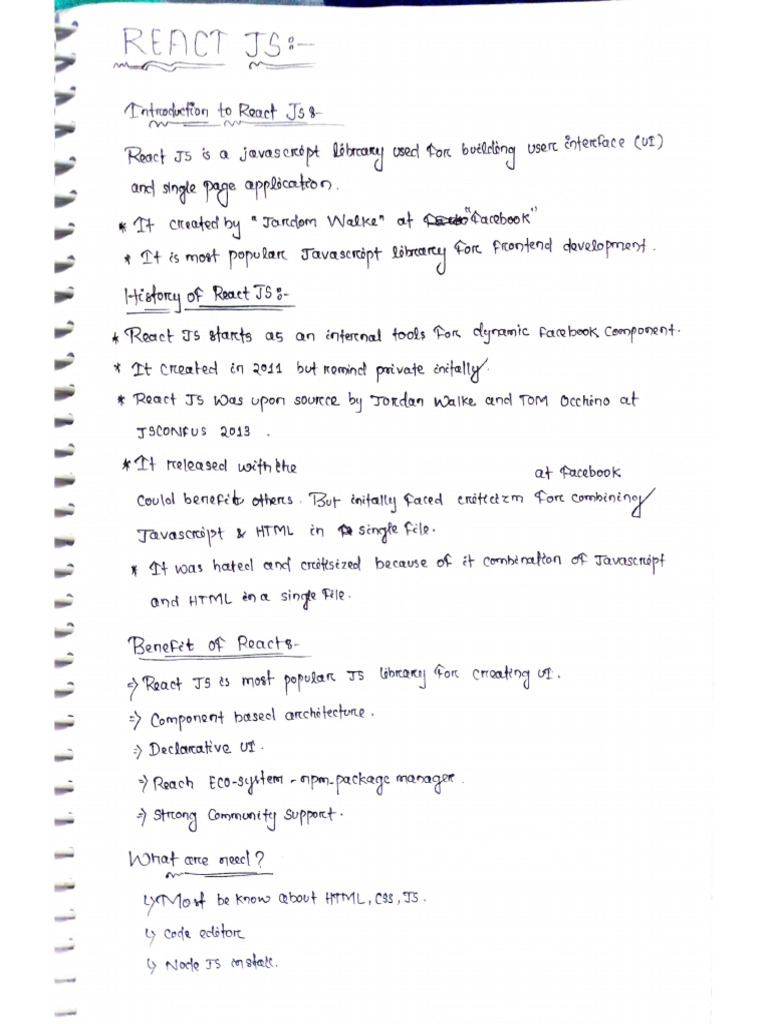 REACT JS:-
Introduction to React JS:-
React JS is a javascript library used for building user interface (UI)
and single page application.
* It created by "Jardom Walke" at "Facebook"
* It is most popular Javascript library for frontend development.
History of React JS:-
* React JS starts as an internal tools for dynamic facebook component.
* It created in 2011 but remind private initally.
* React JS was upon source by Jordan Walke and TOM Occhino at
JSCONFUS 2013.
* It released with the at facebook
could benefit others. But initally faced critictzm for combining
Javascript & HTML in single file.
* It was hated and critsized because of it combination of Javascript
and HTML in a single file.
Benefit of React:-
=> React JS is most popular JS library for creating UI.
=> Component based architecture.
=> Declarative UI.
=> Reach ECO-system - npm-package manager.
=> Strong Community Support.
What are need?
↳ Most be know about HTML, CSS, JS.
↳ Code editor
↳ Node JS install.